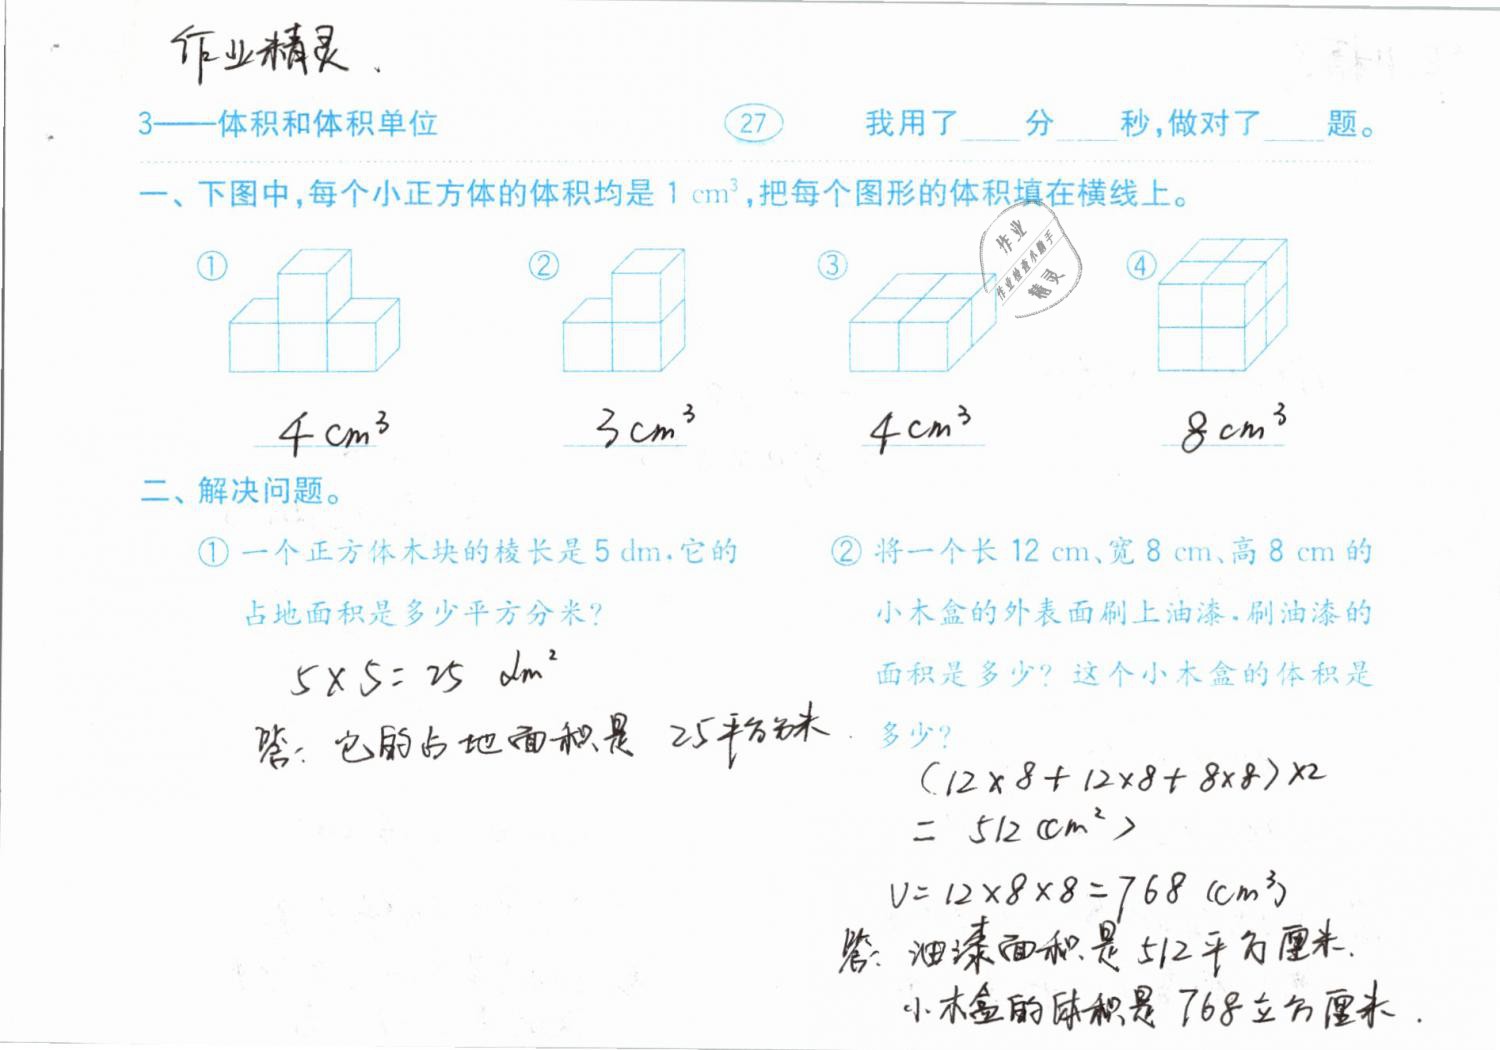 作业精灵.
3——体积和体积单位 27 我用了____分____秒,做对了____题。
一、下图中,每个小正方体的体积均是 1 cm³,把每个图形的体积填在横线上。
① ② ③ ④
作业
作业检查小助手
精灵
4 cm³ 3 cm³ 4 cm³ 8 cm³
二、解决问题。
① 一个正方体木块的棱长是 5 dm,它的
占地面积是多少平方分米?
5×5=25 dm²
答: 它的占地面积是 25平方分米.
② 将一个长 12 cm、宽 8 cm、高 8 cm 的
小木盒的外表面刷上油漆,刷油漆的
面积是多少? 这个小木盒的体积是
多少?
(12×8+12×8+8×8)×2
= 512 (cm²)
V=12×8×8=768 (cm³)
答: 油漆面积是512平方厘米.
小木盒的体积是768立方厘米.